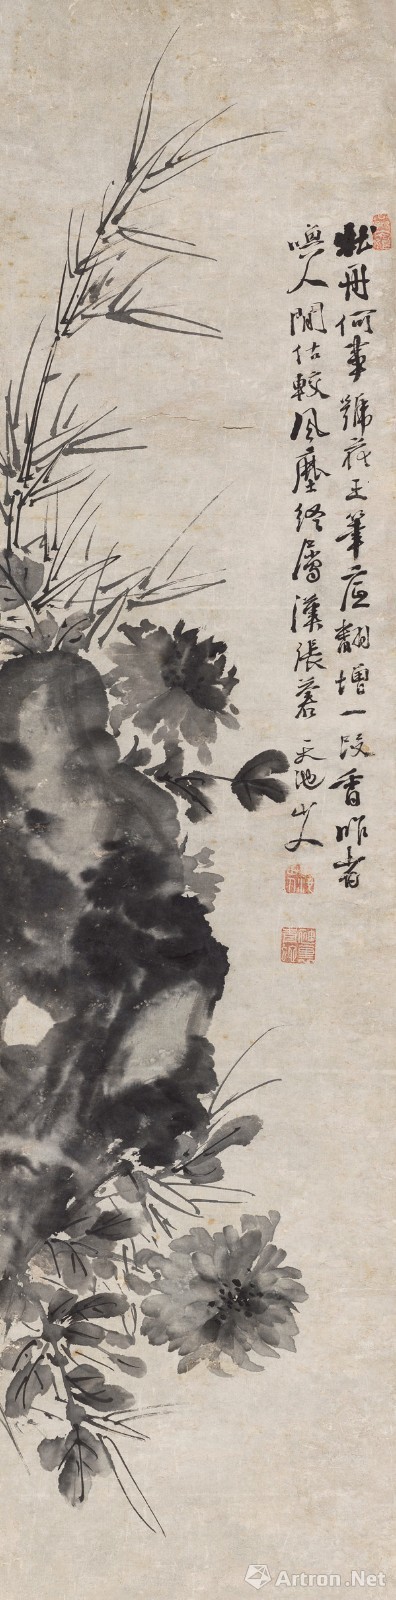 牡丹何事號花王筆底翻增一段香昨者
人閒估較風塵終屬漢張蒼 天池山人
Artron.Net